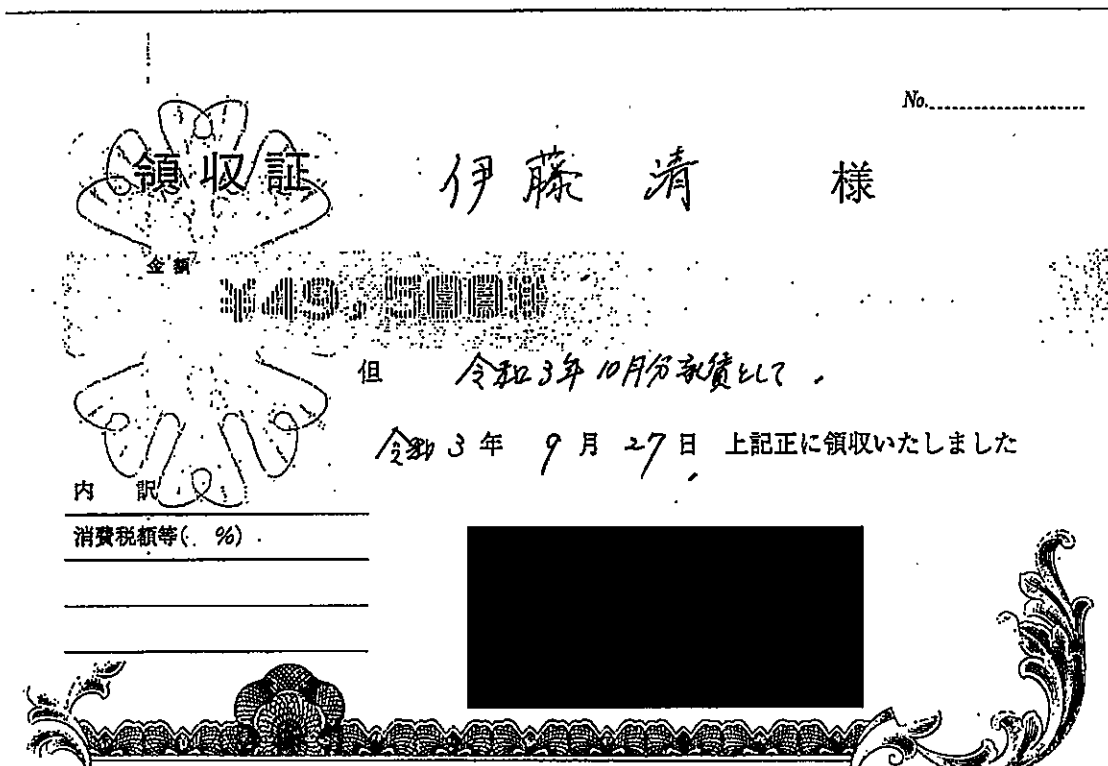 No.
領収証
伊藤 清 様
金額
¥49,500※
但 令和3年10月分家賃として
令和3年 9月 27日 上記正に領収いたしました
内 訳
消費税額等( %)